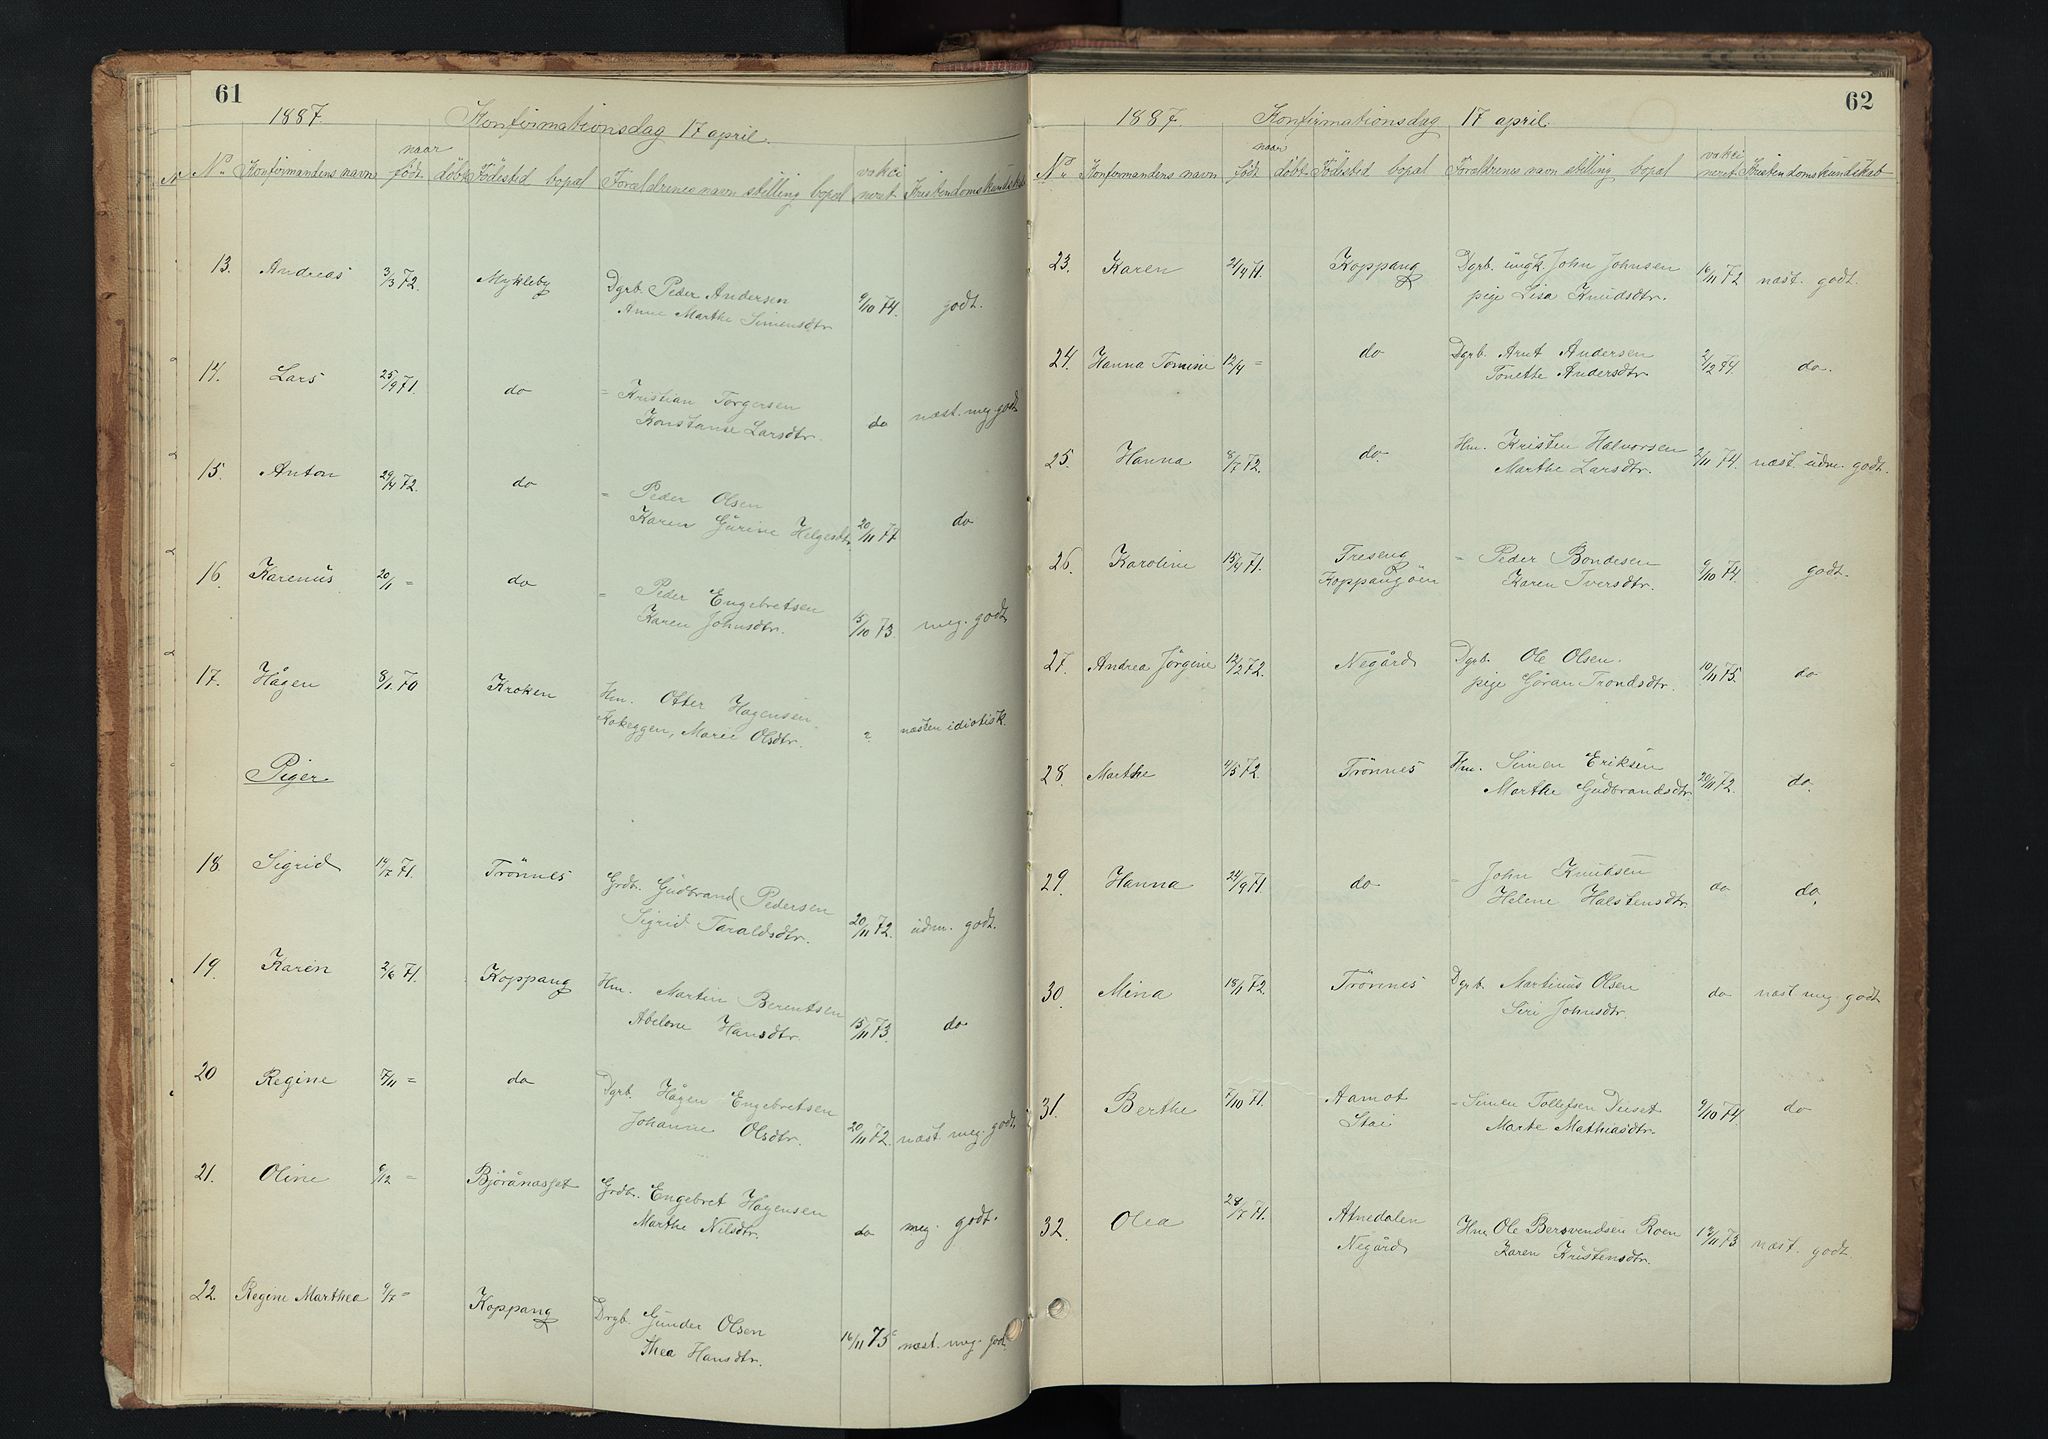 61
1887 Konfirmationsdag 17 april.
naar vakci
No. Konfirmandens navn født døbt Fødested bopæl Forældrenes navn stilling bopæl neret Kristendomskundskab
13. Andreas 3/3 72. Mykleby Dgrb. Peder Andersen 9/10 74. godt.
Anne Marthe Simensdtr.
14. Lars 25/9 71. do = Kristian Torgersen do næst. meg. godt
Konstanse Larsdtr.
15. Anton 29/4 72. do = Peder Olsen 20/11 77 do
Karen Gurine Helgesdtr.
16. Karenus 20/1 = do = Peder Engebretsen 15/10 73. meg. godt
Karen Johnsdtr.
17. Hågen 8/1 70 Kroken Hm. Otter Hagensen ? næsten idiotisk.
Kokeggen, Marie Olsdtr.
Piger.
18. Sigrid 14/7 71. Trönnes Grdb. Gudbrand Pedersen 20/11 72. udm. godt.
Sigrid Taraldsdtr.
19. Karen 2/6 71. Koppang Hm. Martin Berentsen 15/11 73. do
Abelone Hansdtr.
20 Regine 7/11 = do Dgrb. Hågen Engebretsen 20/11 72. næst. meg. godt
Johanne Olsdtr.
21. Oline 6/12 = Björånæsset Grdbr. Engebret Hagensen do meg. godt.
Marthe Nilsdtr.
22. Regine Marthea 9/7 = Koppang Drgb. Gunder Olsen 16/11 75 næst. meg. godt.
Thea Hansdtr.
62
1887. Konfirmationsdag 17 april.
naar vakci
No. Konfirmandens navn født døbt Fødested bopæl Forældrenes navn stilling bopæl neret Kristendomskundskab
23. Karen 2/9 71. Koppang Dgrb. ungk. John Johnsen 16/11 72 næst. godt.
pige Lisa Knudsdtr.
24. Hanna Tomine 12/4 = do Dgrb. Arnt Andersen 2/12 74. do.
Tonethe Andersdtr.
25. Hanna 8/7 72. do. Hm. Kristen Halvorsen 2/11 74. næst. udm. godt.
Marthe Larsdtr.
26. Karoline 15/4 71. Treseng = Peder Bondesen 9/10 74. godt.
Koppangöen Karen Iversdtr.
27. Andrea Jörgine 12/2 72. Negård Dgrb. Ole Olsen. 10/11 75. do
pige Göran Trondsdtr.
28. Marthe 4/5 72. Trönnes Hm. Simen Eriksen 20/11 72. do.
Marthe Gudbrandsdtr.
29. Hanna 24/9 71. do = John Knudsen do do.
Helene Halstensdtr.
30. Mina 18/1 72. Trönnes Dgrb. Martinus Olsen do næst meg. godt
Siri Johnsdtr.
31. Berthe 7/10 71. Aamot = Simen Tollefsen Deset 9/10 74. do
Stai Marte Mathiasdtr.
32. Olea 28/7 71. Atnedalen Hm. Ole Bersvendsen Roen 13/11 73 næst. godt.
Negård Karen Kristensdtr.